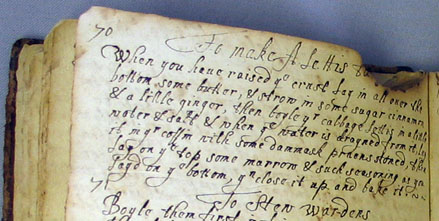 70
To make A Lettis ta
When you haue raised yᵉ crust lay in all over the
bottom some butter, & strow in some sugar cinnamon
& a little ginger, then boyle yᵉ cabbage lettis in a little
water & salt & when yᵉ water is drayned from it lay
it in yʳ coffin with some dammask pruens stoned, then
lay on yᵉ top some marrow & such seasoning as you
layd on yᵉ bottom, yⁿ close it up and bake it
71
To Stew Wardens
Boyle them first in